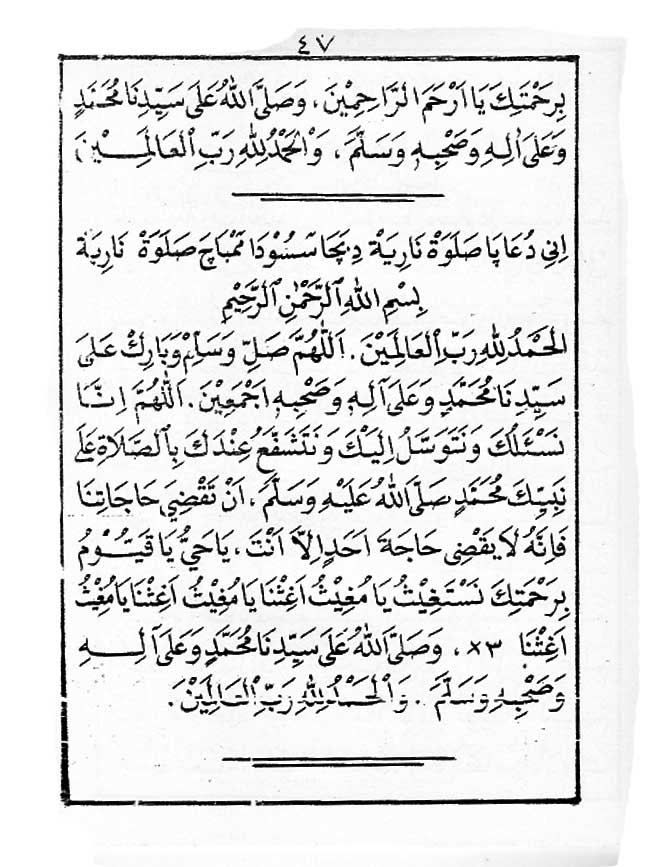 ٤٧
بِرَحْمَتِكَ يَا اَرْحَمَ الرَّاحِمِيْنَ، وَصَلَّى اللهُ عَلَى سَيِّدِنَا مُحَمَّدٍ
وَعَلَى اٰلِهِ وَصَحْبِهِ وَسَلَّمَ، وَالْحَمْدُ لِلهِ رَبِّ الْعَالَمِيْنَ
اِنِي دُعَا ڤَا صَلَوَةْ نَارِيَةْ دِبَچَا سَسُوْدَا مَمْبَاچَ صَلَوَةْ نَارِيَة
بِسْمِ اللهِ الرَّحْمٰنِ الرَّحِيْمِ
الْحَمْدُ لِلهِ رَبِّ الْعَالَمِيْنَ. اَللّٰهُمَّ صَلِّ وَسَلِّمْ وَبَارِكْ عَلَى
سَيِّدِنَا مُحَمَّدٍ وَعَلَى اٰلِهِ وَصَحْبِهِ اَجْمَعِيْنَ. اَللّٰهُمَّ اِنَّا
نَسْئَلُكَ وَنَتَوَسَّلُ اِلَيْكَ وَنَتَشَفَّعُ عِنْدَكَ بِالصَّلَاةِ عَلَى
نَبِيِّكَ مُحَمَّدٍ صَلَّى اللهُ عَلَيْهِ وَسَلَّمَ، اَنْ تَقْضِيَ حَاجَاتِنَا
فَاِنَّهُ لَا يَقْضِى حَاجَةَ اَحَدٍ اِلَّا اَنْتَ، يَا حَيُّ يَا قَيُّوْمُ
بِرَحْمَتِكَ نَسْتَغِيْثُ يَا مُغِيْثُ اَغِثْنَا يَا مُغِيْثُ اَغِثْنَا يَا مُغِيْثُ
اَغِثْنَا ×٣، وَصَلَّى اللهُ عَلَى سَيِّدِنَا مُحَمَّدٍ وَعَلَى اٰلِهِ
وَصَحْبِهِ وَسَلَّمَ. وَالْحَمْدُ لِلهِ رَبِّ الْعَالَمِيْنَ.